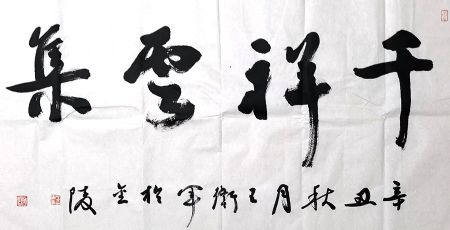 千祥雲集
辛丑秋月王衛軍於金陵